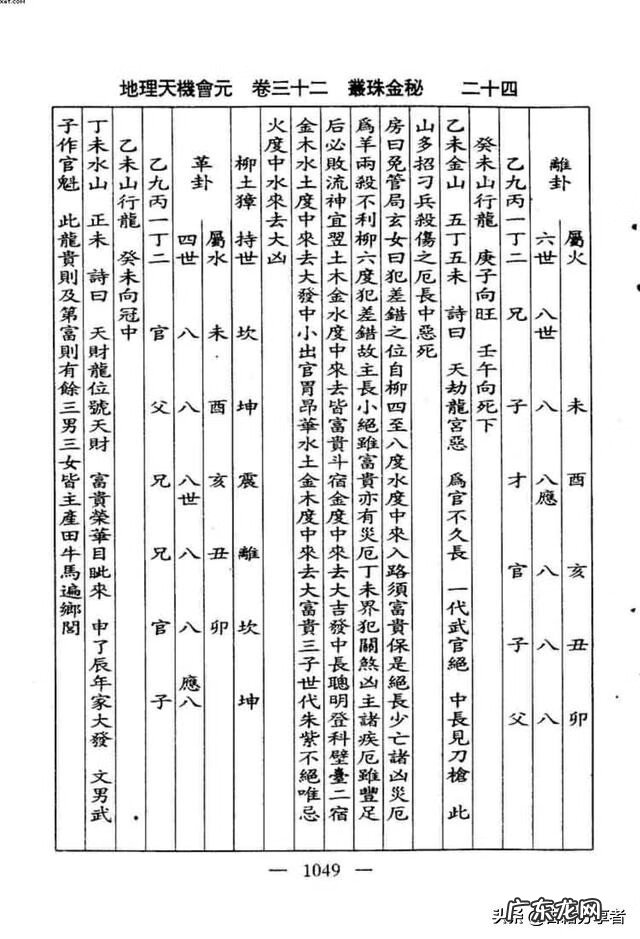 xet.com
地理天機會元 卷三十二 叢珠金秘 二十四
離卦
屬火 未 酉 亥 丑 卯
六世 八世 八 八應 八 八 八
乙九丙一丁二 兄 子 才 官 子 父
癸未山行龍 庚子向旺 壬午向死下
乙未金山 五丁五未 詩曰 天劫龍宮惡 爲官不久長 一代武官絕 中長見刀槍 此
山多招刁兵殺傷之厄長中惡死
房曰免管局玄女曰犯差錯之位自柳四至八度水度中來入路須富貴保是絕長少亡諸凶災厄
爲羊兩殺不利柳六度犯差錯故主長小絕雖富貴亦有災厄丁未界犯關煞凶主諸疾厄雖豐足
后必敗流神宜翌土木金水度中來去皆富貴斗宿金度中來去大吉發中長聰明登科壁臺二宿
金木水土度中來去大發中小出官胃昂華水土金木度中來去大富貴三子世代朱紫不絕唯忌
火度中水來去大凶
柳土獐 持世 坎 坤 震 離 坎 坤
革卦
屬水 未 酉 亥 丑 卯
四世 八 八 八世 八 八 應八
乙九丙一丁二 官 父 兄 兄 官 子
乙未山行龍 癸未向冠中
丁未水山 正未 詩曰 天財龍位號天財 富貴榮華目眦來 申了辰年家大發 文男武
子作官魁 此龍貴則及第富則有餘三男三女皆主產田牛馬遍鄉閭
— 1049 —
广东龙网